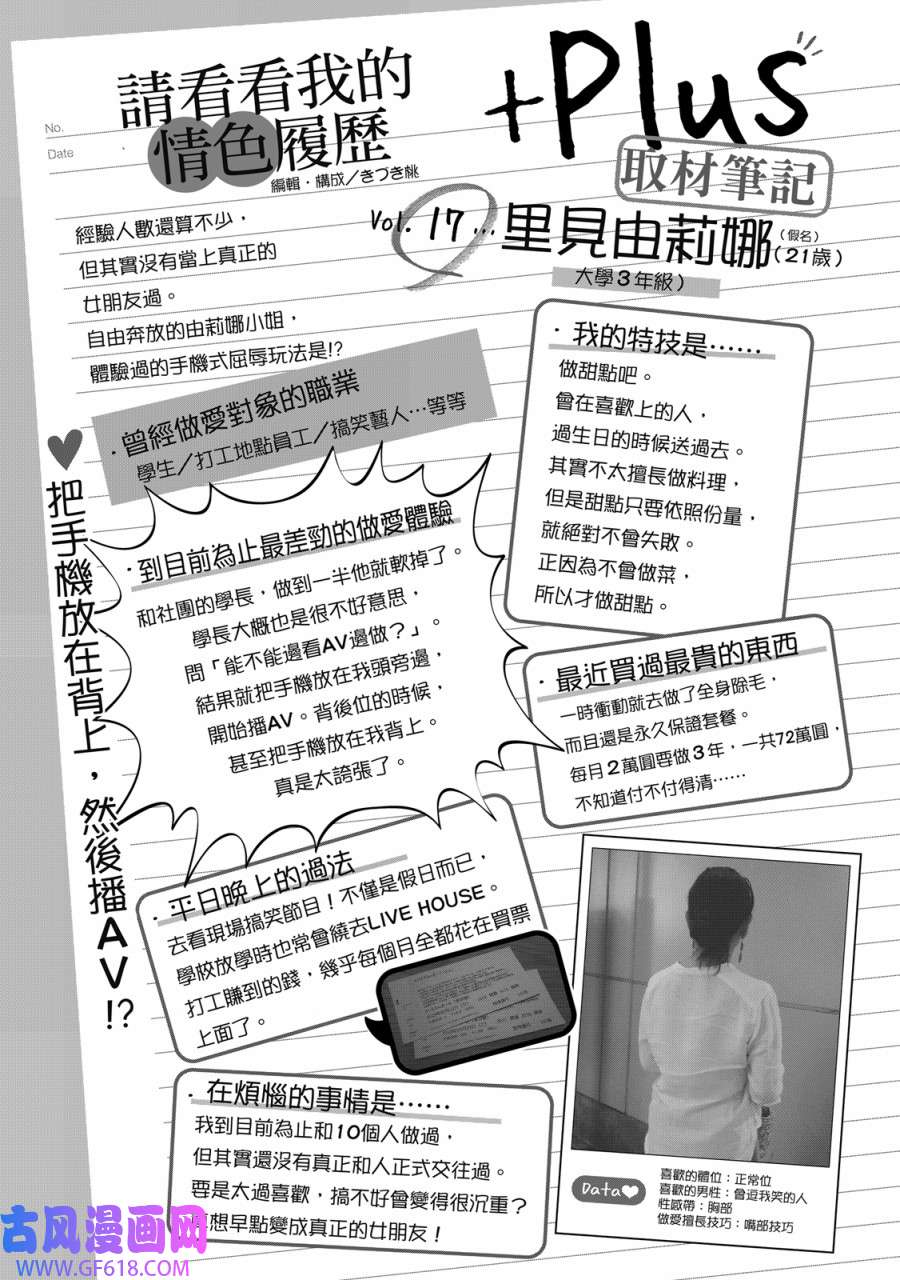 No.
Date
請看看我的
情色履歷
編輯・構成／きづき桃
+Plus
取材筆記
Vol. 17…里見由莉娜(假名)(21歲)
大學3年級)
經驗人數還算不少，
但其實沒有當上真正的
女朋友過。
自由奔放的由莉娜小姐，
體驗過的手機式屈辱玩法是!?
・曾經做愛對象的職業
學生／打工地點員工／搞笑藝人…等等
♥把手機放在背上，然後播AV!?
・到目前為止最差勁的做愛體驗
和社團的學長，做到一半他就軟掉了。
學長大概也是很不好意思，
問「能不能邊看AV邊做？」。
結果就把手機放在我頭旁邊，
開始播AV。背後位的時候，
甚至把手機放在我背上。
真是太誇張了。
・我的特技是……
做甜點吧。
曾在喜歡上的人，
過生日的時候送過去。
其實不太擅長做料理，
但是甜點只要依照份量，
就絕對不會失敗。
正因為不會做菜，
所以才做甜點。
・最近買過最貴的東西
一時衝動就去做了全身除毛，
而且還是永久保證套餐。
每月2萬圓要做3年，一共72萬圓，
不知道付不付得清……
・平日晚上的過法
去看現場搞笑節目！不僅是假日而已，
學校放學時也常會繞去LIVE HOUSE。
打工賺到的錢，幾乎每個月全都花在買票
上面了。
・在煩惱的事情是……
我到目前為止和10個人做過，
但其實還沒有真正和人正式交往過。
要是太過喜歡，搞不好會變得很沉重？
想早點變成真正的女朋友！
Data♥
喜歡的體位；正常位
喜歡的男性；會逗我笑的人
性感帶；胸部
做愛擅長技巧；嘴部技巧
古风漫画网
WWW.GF618.COM